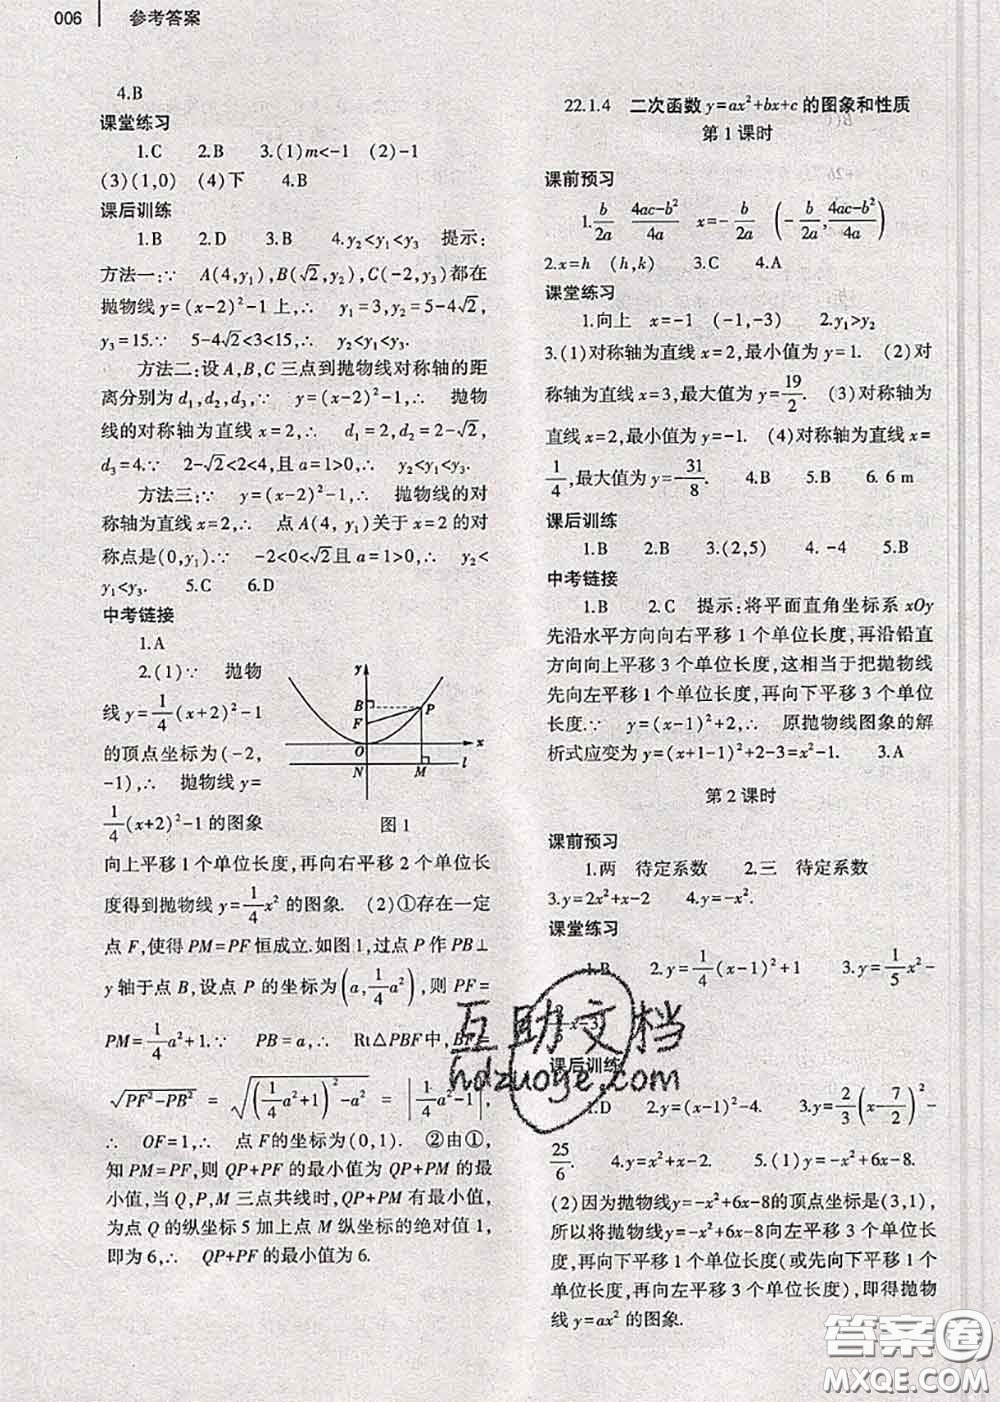 006 参考答案
4.B
课堂练习
1.C 2.B 3.(1)m<-1 (2)-1
(3)(1,0) (4)下 4.B
课后训练
1.B 2.D 3.B 4.y₂<y₁<y₃ 提示:
方法一:∵ A(4,y₁),B(√2,y₂),C(-2,y₃)都在
抛物线y=(x-2)²-1上,∴ y₁=3,y₂=5-4√2,
y₃=15.∵ 5-4√2<3<15,∴ y₂<y₁<y₃.
方法二:设A,B,C三点到抛物线对称轴的距
离分别为d₁,d₂,d₃,∵ y=(x-2)²-1,∴ 抛物
线的对称轴为直线x=2,∴ d₁=2,d₂=2-√2,
d₃=4.∵ 2-√2<2<4,且a=1>0,∴ y₂<y₁<y₃.
方法三:∵ y=(x-2)²-1,∴ 抛物线的对
称轴为直线x=2,∴ 点A(4, y₁)关于x=2的对
称点是(0,y₁).∵ -2<0<√2且a=1>0,∴ y₂<
y₁<y₃. 5.C 6.D
中考链接
1.A
2.(1)∵ 抛物
线y=1/4(x+2)²-1
的顶点坐标为(-2,
-1),∴ 抛物线y=
1/4(x+2)²-1的图象
y
B P
F
O x
N M l
图1
向上平移1个单位长度,再向右平移2个单位长
度得到抛物线y=1/4x²的图象. (2)①存在一定
点F,使得PM=PF恒成立.如图1,过点P作PB⊥
y轴于点B,设点P的坐标为(a,1/4a²),则PF=
PM=1/4a²+1.∵ PB=a,∴ Rt△PBF中,BF=
√(PF²-PB²) = √((1/4a²+1)²-a²) = |1/4a²-1|,
∴ OF=1,∴ 点F的坐标为(0,1). ②由①,
知PM=PF,则QP+PF的最小值为QP+PM的最
小值,当Q,P,M三点共线时,QP+PM有最小值,
为点Q的纵坐标5加上点M纵坐标的绝对值1,
即为6,∴ QP+PF的最小值为6.
22.1.4 二次函数y=ax²+bx+c的图象和性质
第1课时
课前预习
1.b/2a (4ac-b²)/4a x=-b/2a (-b/2a,(4ac-b²)/4a)
2.x=h (h,k) 3.C 4.A
课堂练习
1.向上 x=-1 (-1,-3) 2.y₁>y₂
3.(1)对称轴为直线x=2,最小值为y=1. (2)对
称轴为直线x=3,最大值为y=19/2. (3)对称轴为
直线x=2,最小值为y=-1. (4)对称轴为直线x=
1/4,最大值为y=-31/8. 4.B 5.B 6.6 m
课后训练
1.B 2.B 3.(2,5) 4.-4 5.B
中考链接
1.B 2.C 提示:将平面直角坐标系xOy
先沿水平方向向右平移1个单位长度,再沿铅直
方向向上平移3个单位长度,这相当于把抛物线
先向左平移1个单位长度,再向下平移3个单位
长度.∵ y=(x-1)²+2,∴ 原抛物线图象的解
析式应变为y=(x+1-1)²+2-3=x²-1. 3.A
第2课时
课前预习
1.两 待定系数 2.三 待定系数
3.y=2x²+x-2 4.y=-x².
课堂练习
1.B 2.y=1/4(x-1)²+1 3.y=1/5x²-
课后训练
1.D 2.y=(x-1)²-4. 3.y=2/3(x-7/2)²-
25/6. 4.y=x²+x-2. 5.(1)y=-x²+6x-8.
(2)因为抛物线y=-x²+6x-8的顶点坐标是(3,1),
所以将抛物线y=-x²+6x-8向左平移3个单位长
度,再向下平移1个单位长度(或先向下平移1个
单位长度,再向左平移3个单位长度),即得抛物
线y=ax²的图象.
互助文档
hdzuoye.com
答案圈
MXQE.COM